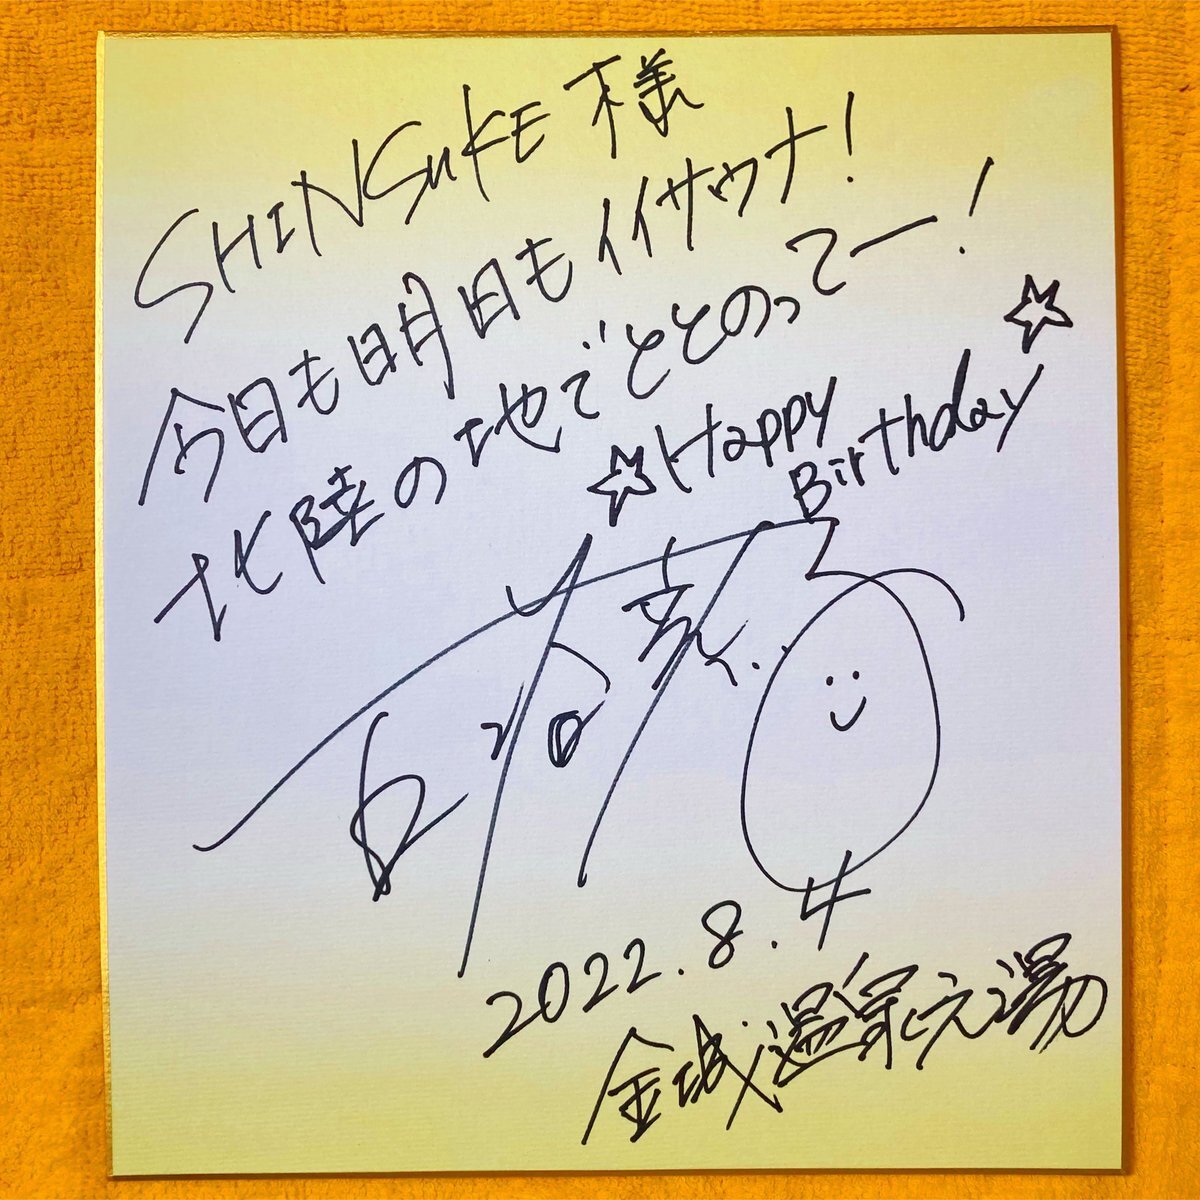 SHINSUKE 様
今日も明日もイイサウナ!
北陸の地でととのってー!
☆Happy Birthday☆
2022.8.4
金城温泉元湯